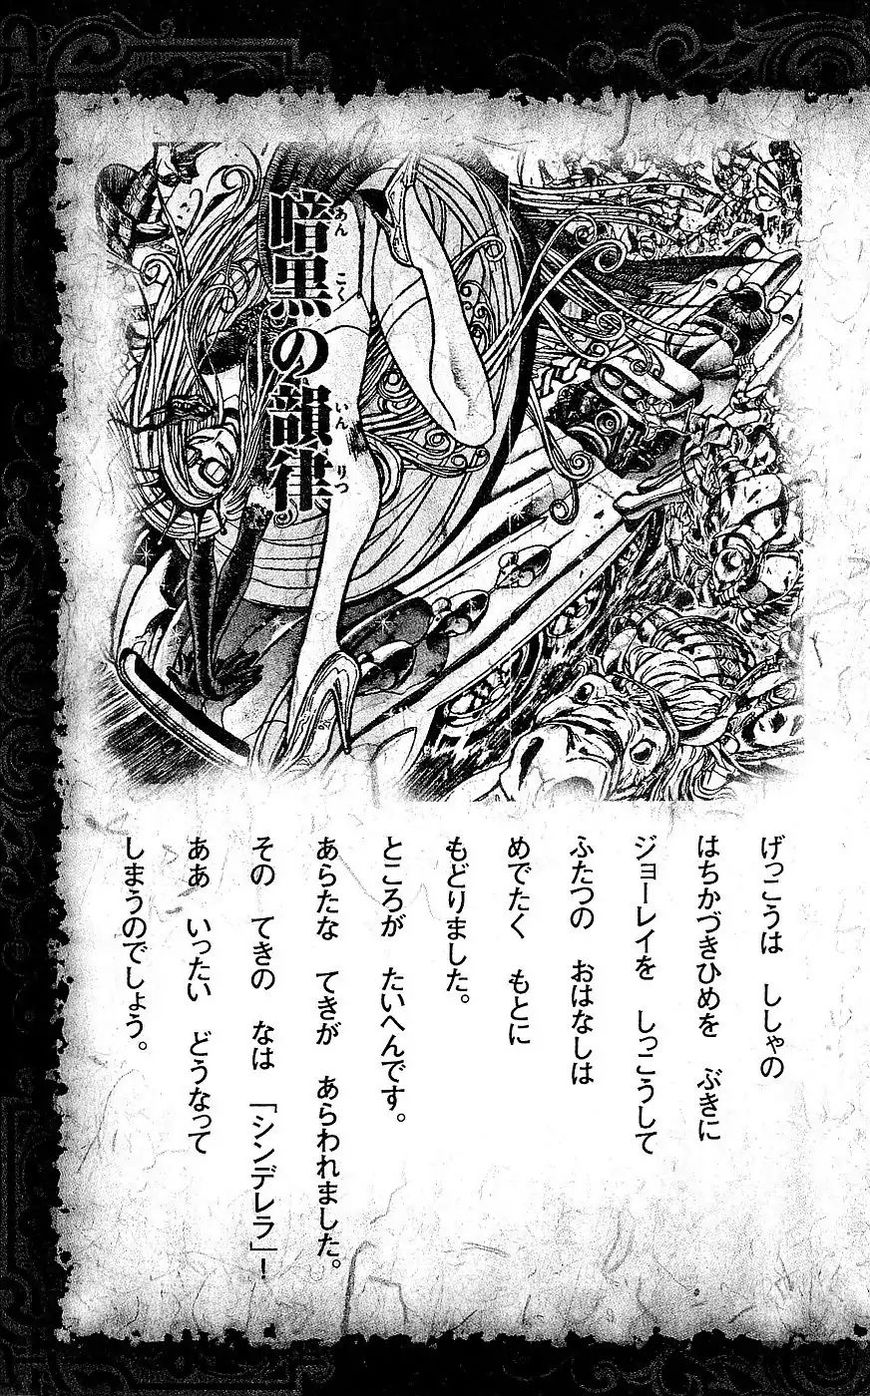 暗黒の韻律
あんこく いんりつ
げっこうは ししゃの
はちかづきひめを ぶきに
ジョーレイを しっこうして
ふたつの おはなしは
めでたく もとに
もどりました。
ところが たいへんです。
あらたな てきが あらわれました。
その てきの なは 「シンデレラ」！
ああ いったい どうなって
しまうのでしょう。